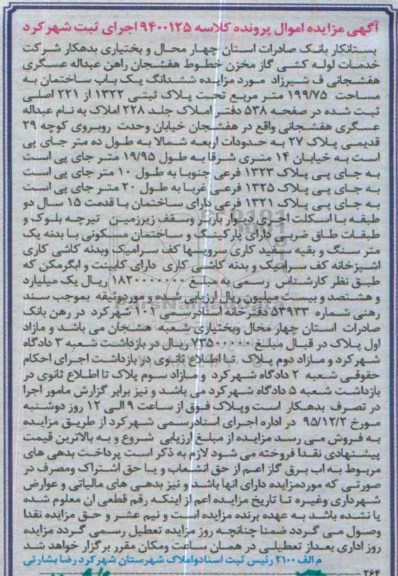 آگهی مزایده اموال پرونده کلاسه ۹۴۰۰۱۲۵ اجرای ثبت شهرکرد
بستانکار بانک صادرات استان چهار محال و بختیاری بدهکار شرکت
خدمات لوله کشی گاز مخزن خطوط هفشجان راهن عبداله عسگری
هفشجانی ف شیرزاد مورد مزایده ششدانگ یک باب ساختمان به
مساحت ۱۹۹/۷۵ متر مربع تحت پلاک ثبتی ۱۳۲۲ از ۲۲۱ اصلی
ثبت شده در صفحه ۵۳۸ دفتر املاک جلد ۲۲۸ املاک به نام عبداله
عسگری هفشجانی واقع در هفشجان خیابان وحدت روبروی کوچه ۲۹
قدیمی پلاک ۲۷ به حدودات اربعه شمالا به طول ده متر جای پی
است به خیابان ۱۴ متری شرقا به طول ۱۹/۹۵ متر جای پی است
به جای پی پلاک ۱۳۲۳ فرعی جنوبا به طول ۱۰ متر جای پی است
به جای پی پلاک ۱۳۲۵ فرعی غربا به طول ۲۰ متر جای پی است
به جای پی پلاک ۱۳۲۱ فرعی دارای ساختمان با قدمت ۱۵ سال دو
طبقه با اسکلت اجری دیوار باربر وسقف زیرزمین تیرچه بلوک و
طبقات طاق ضربی دارای پارکینگ و ساختمان مسکونی با بدنه یک
متر سنگ و بقیه سفید کاری سرویسها کف سرامیک وبدنه کاشی کاری
اشپزخانه کف سرامیک و بدنه کاشی کاری دارای کابینت و ابگرمکن که
طبق نظر کارشناس رسمی به مبلغ ریال یک میلیارد
و هشتصد و بیست میلیون ریال ارزیابی شده و موردوثیقه بموجب سند
رهنی شماره ۵۳۹۳۳ دفترخانه اسنادرسمی ۱۰۱ شهرکرد در رهن بانک
صادرات استان چهار محال وبختیاری شعبه هفشجان می باشد و مازاد
اول پلاک در قبال مبلغ ریال در بازداشت شعبه ۳ دادگاه
شهرکرد و مازاد دوم پلاک تا اطلاع ثانوی در بازداشت اجرای احکام
حقوقی شعبه ۲ دادگاه شهرکرد و مازاد سوم پلاک تا اطلاع ثانوی در
بازداشت شعبه ۵ دادگاه شهرکرد می باشد و نیز برابر گزارش مامور اجرا
در تصرف بدهکار است وپلاک فوق از ساعت ۹ الی ۱۲ روز دوشنبه
مورخ ۹۵/۱۲/۲ در اداره اجرای اسناد رسمی شهرکرد از طریق مزایده
به فروش می رسد مزایده از مبلغ ارزیابی شروع و به بالاترین قیمت
پیشنهادی نقدا فروخته می شود لازم به ذکر است پرداخت بدهی های
مربوط به اب برق گاز اعم از حق انشعاب و یا حق اشتراک ومصرف در
صورتی که موردمزایده دارای آنها باشد و نیز بدهی های مالیاتی و عوارض
شهرداری وغیره تا تاریخ مزایده اعم از اینکه رقم قطعی ان معلوم شده
یا نشده باشد به عهده برنده مزایده است و نیم عشر و حق مزایده نقدا
وصول می گردد ضمنا چنانچه روز مزایده تعطیل رسمی گردد مزایده
روز اداری بعداز تعطیلی در همان ساعت ومکان مقرر برگزار خواهد شد
م الف ۲۱۰۰ رئیس ثبت اسنادواملاک شهرستان شهرکرد رضا بشارتی
۲۶۴